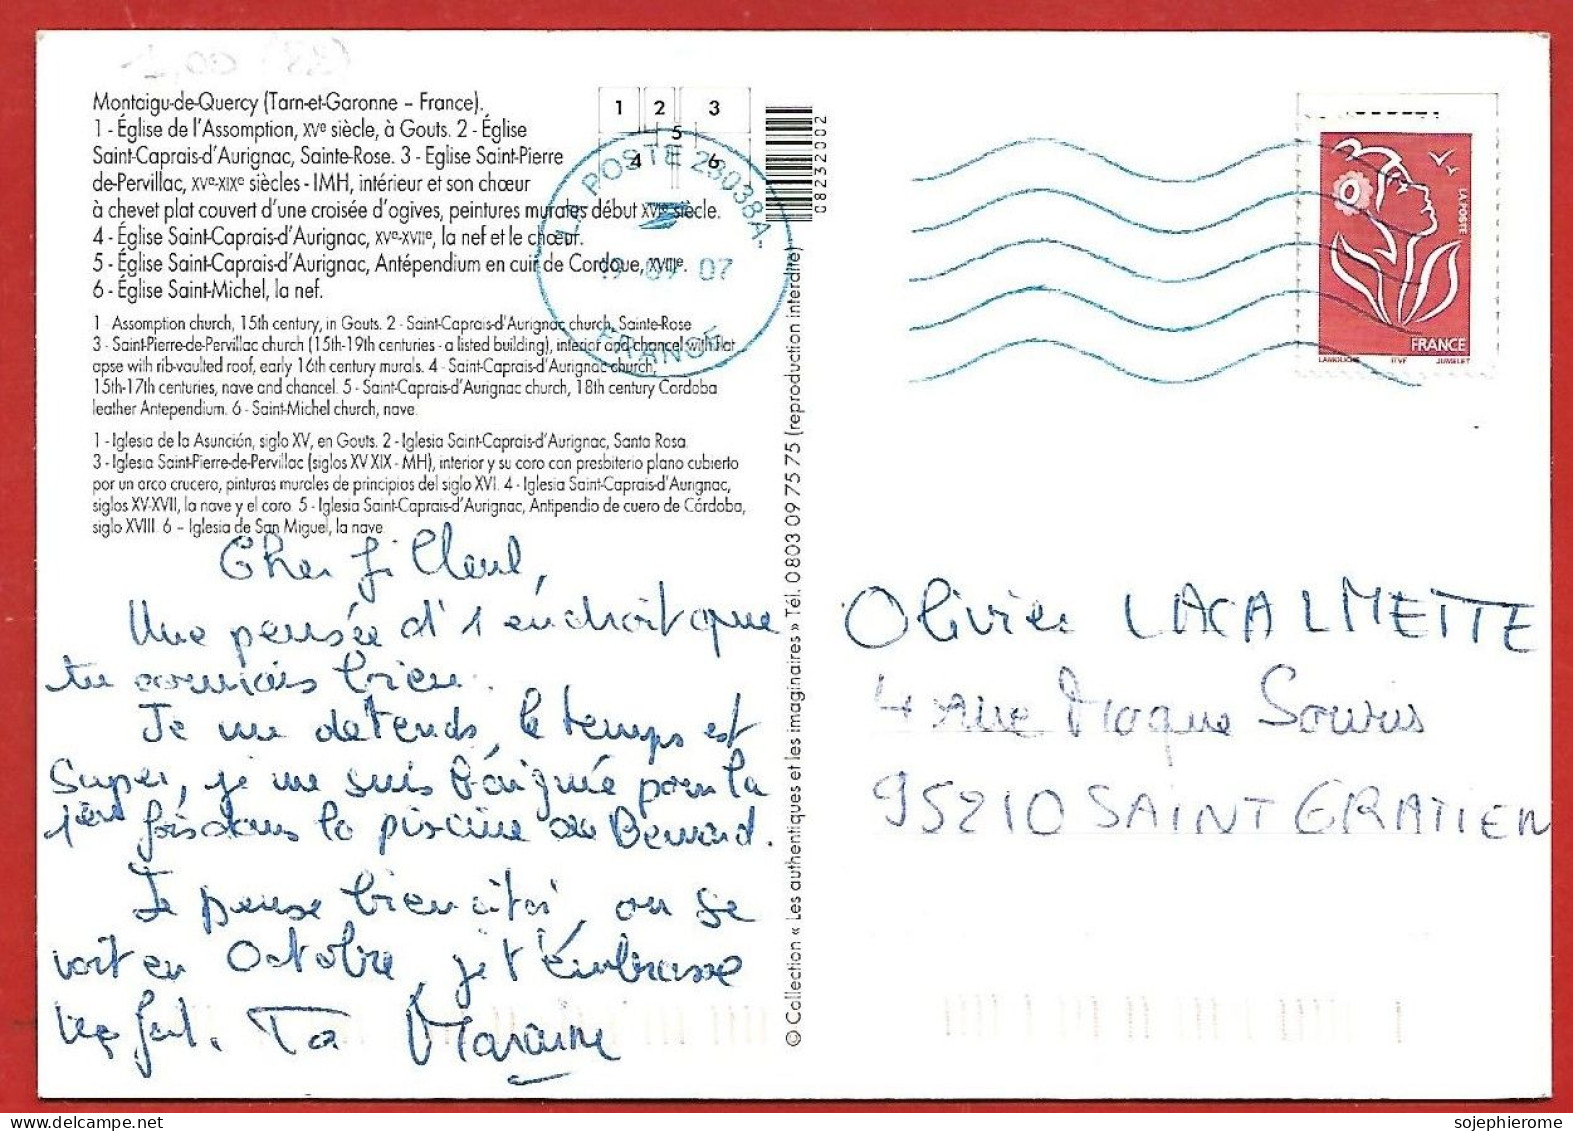 Montaigu-de-Quercy (Tarn-et-Garonne – France).
1 - Église de l'Assomption, XVe siècle, à Gouts. 2 - Église
Saint-Caprais-d'Aurignac, Sainte-Rose. 3 - Eglise Saint-Pierre
de-Pervillac, XVe-XIXe siècles - IMH, intérieur et son chœur
à chevet plat couvert d'une croisée d'ogives, peintures murales début XVIe siècle.
4 - Église Saint-Caprais-d'Aurignac, XVe-XVIIe, la nef et le chœur.
5 - Église Saint-Caprais-d'Aurignac, Antépendium en cuir de Cordoue, XVIIIe.
6 - Église Saint-Michel, la nef.
1 - Assomption church, 15th century, in Gouts. 2 - Saint-Caprais-d'Aurignac church, Sainte-Rose
3 - Saint-Pierre-de-Pervillac church (15th-19th centuries - a listed building), interior and chancel with flat
apse with rib-vaulted roof, early 16th century murals. 4 - Saint-Caprais-d'Aurignac church,
15th-17th centuries, nave and chancel. 5 - Saint-Caprais-d'Aurignac church, 18th century Cordoba
leather Antependium. 6 - Saint-Michel church, nave.
1 - Iglesia de la Asunción, siglo XV, en Gouts. 2 - Iglesia Saint-Caprais-d'Aurignac, Santa Rosa.
3 - Iglesia Saint-Pierre-de-Pervillac (siglos XV XIX - MH), interior y su coro con presbiterio plano cubierto
por un arco crucero, pinturas murales de principios del siglo XVI. 4 - Iglesia Saint-Caprais-d'Aurignac,
siglos XV-XVII, la nave y el coro. 5 - Iglesia Saint-Caprais-d'Aurignac, Antipendio de cuero de Córdoba,
siglo XVIII. 6 – Iglesia de San Miguel, la nave.
1 2 3
5
4 6
LA POSTE 28038A.
19 07 07
FRANCE
08232002
© Collection « Les authentiques et les imaginaires » Tél. 0 803 09 75 75 (reproduction interdite)
Cher filleul,
Une pensée d'1 endroit que
tu connais bien.
Je me détends, le temps est
super, je me suis baignée pour la
1ère fois dans la piscine de Bernard.
Je pense bien à toi, on se
voit en Octobre, je t'embrasse
très fort. Ta Marraine
LA POSTE
FRANCE
LAMOUCHE ITVF JUMELET
Olivier LACALMETTE
4 rue Moque Souris
95210 SAINT GRATIEN
sojephierome